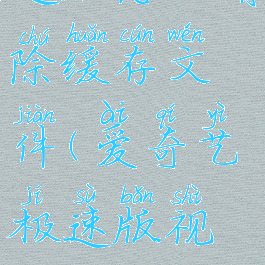 chú huǎn cún wén
除缓存文
jiàn ài qí yì
件(爱奇艺
jí sù bǎn shì
极速版视